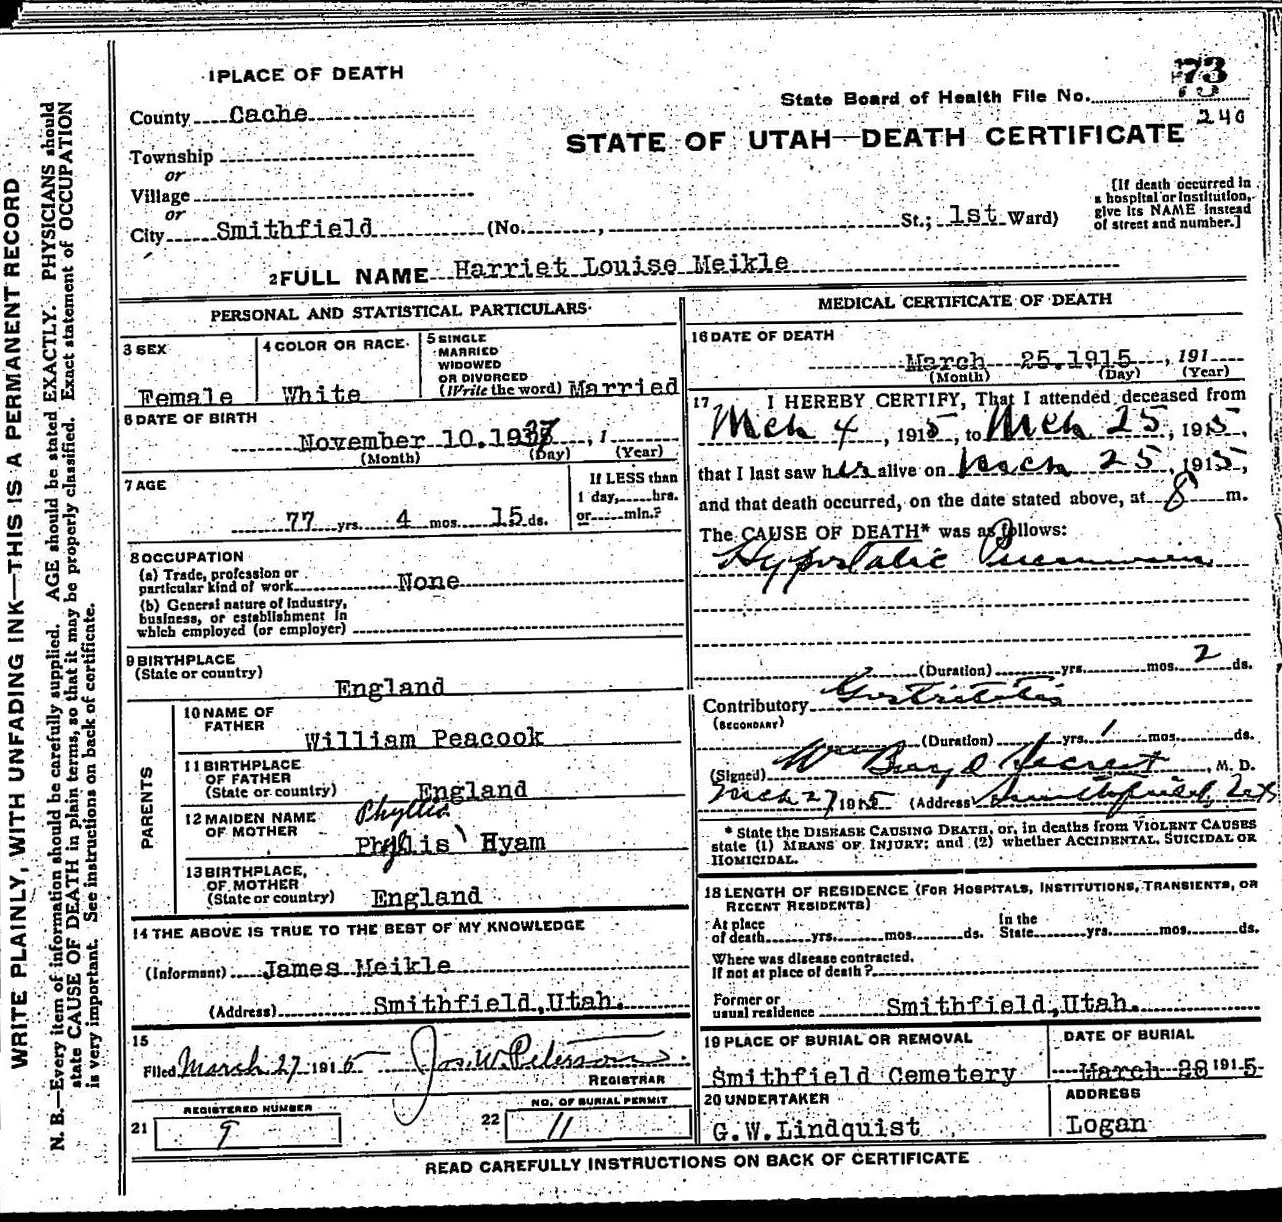 WRITE PLAINLY, WITH UNFADING INK—THIS IS A PERMANENT RECORD
N. B.—Every item of information should be carefully supplied. AGE should be stated EXACTLY. PHYSICIANS should
state CAUSE OF DEATH in plain terms, so that it may be properly classified. Exact statement of OCCUPATION
is very important. See instructions on back of certificate.
1 PLACE OF DEATH
County Cache
Township
or
Village
or
City Smithfield (No. , St.; 1st Ward)
State Board of Health File No. 73
240
STATE OF UTAH—DEATH CERTIFICATE
[If death occurred in
a hospital or institution,
give its NAME instead
of street and number.]
2 FULL NAME Harriet Louise Meikle
PERSONAL AND STATISTICAL PARTICULARS
3 SEX
Female
4 COLOR OR RACE
White
5 SINGLE
MARRIED
WIDOWED
OR DIVORCED
(Write the word) Married
6 DATE OF BIRTH
November 10. 37, 1
(Month) (Day) (Year)
7 AGE
77 yrs. 4 mos. 15 ds.
If LESS than
1 day, hrs.
or min.?
8 OCCUPATION
(a) Trade, profession or
particular kind of work None
(b) General nature of industry,
business, or establishment in
which employed (or employer)
9 BIRTHPLACE
(State or country)
England
PARENTS
10 NAME OF
FATHER
William Peacook
11 BIRTHPLACE
OF FATHER
(State or country) England
12 MAIDEN NAME
OF MOTHER
Phyllis
Phyllis Hyam
13 BIRTHPLACE,
OF MOTHER
(State or country) England
14 THE ABOVE IS TRUE TO THE BEST OF MY KNOWLEDGE
(Informant) James Meikle
(Address) Smithfield,Utah.
15
Filed March 27 1915 Jos. W. Peterson
REGISTRAR
REGISTERED NUMBER
21 9
NO. OF BURIAL PERMIT
22 11
MEDICAL CERTIFICATE OF DEATH
16 DATE OF DEATH
March 25.1915, 191
(Month) (Day) (Year)
17 I HEREBY CERTIFY, That I attended deceased from
Mch 4, 1915, to Mch 25, 1915,
that I last saw her alive on Mch 25, 1915,
and that death occurred, on the date stated above, at 8 m.
The CAUSE OF DEATH* was as follows:
Hypostatic Pneumonia
(Duration) yrs. mos. 2 ds.
Contributory
(SECONDARY)
(Duration) yrs. mos. ds.
(Signed) Wm Boyd Secrest M. D.
Mch 27 1915 (Address) Smithfield,
* State the DISEASE CAUSING DEATH, or, in deaths from VIOLENT CAUSES
state (1) MEANS OF INJURY; and (2) whether ACCIDENTAL, SUICIDAL OR
HOMICIDAL.
18 LENGTH OF RESIDENCE (FOR HOSPITALS, INSTITUTIONS, TRANSIENTS, OR
RECENT RESIDENTS)
At place
of death yrs. mos. ds.
In the
State yrs. mos. ds.
Where was disease contracted,
If not at place of death?
Former or
usual residence Smithfield,Utah.
19 PLACE OF BURIAL OR REMOVAL
Smithfield Cemetery
DATE OF BURIAL
March 28 1915
20 UNDERTAKER
G.W.Lindquist
ADDRESS
Logan
READ CAREFULLY INSTRUCTIONS ON BACK OF CERTIFICATE